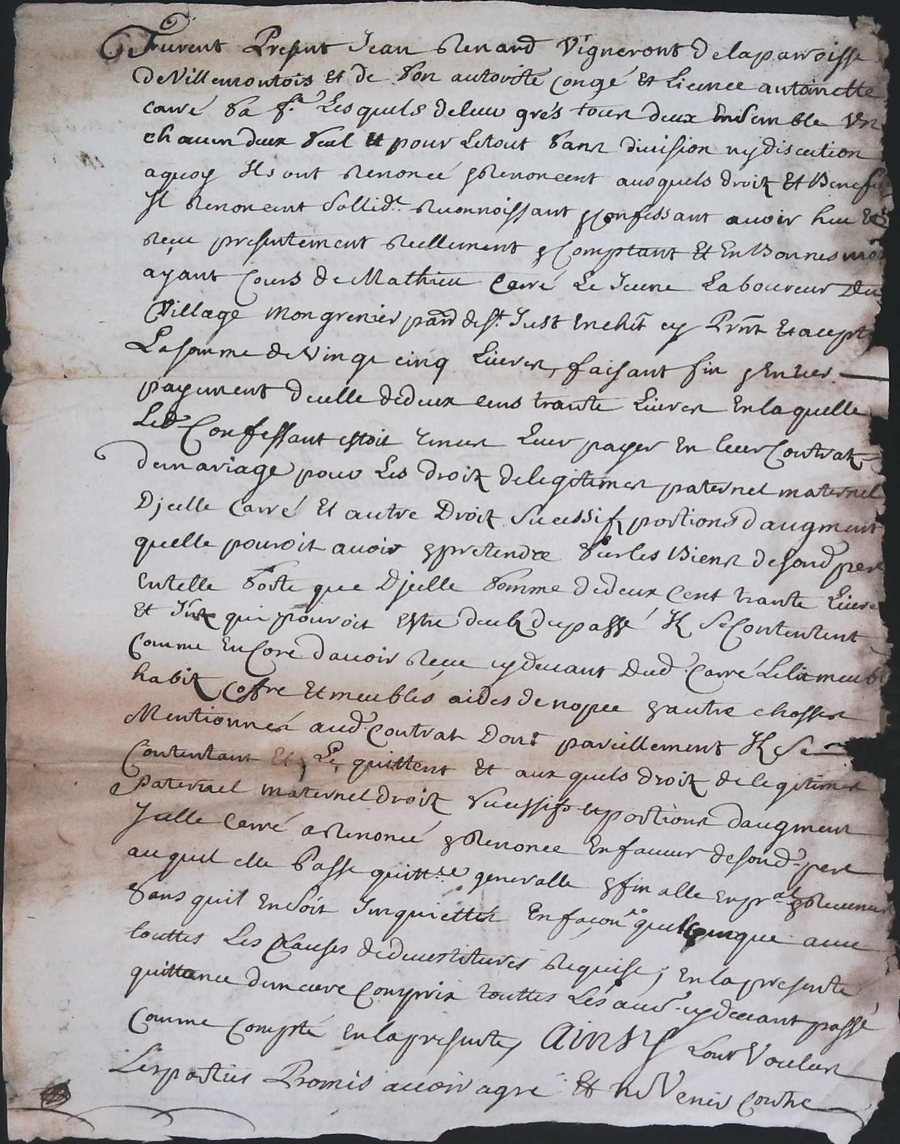 Furent Present Jean Renard Vigneront de la parroisse
de Villemontois et de son autorité congé et licence antoinette
carré sa fe. Lesquels de leur grés tous deux Ensemble Un
chacun deux seul et pour Letout sans division ny discution
aquoy Ils ont Renoncé & Renoncent ausquels droit Et Benef
Il Renoncent sollidt. Reconnoissant & Confessant avoir heu Et
Reçu presentement Reellement & Comptant Et En Bonnes
ayant Cours de Mathieu Carré Le Jeune Laboureur Du
Village Mongrenier de st. Just En chlt. cy Et acept
La somme de Vingt cinq Livres, faisant fin & Entier
payement dicelle de deux cens trante Livres En laquelle
Led. Confessant estoit Leur payer En leur Contrat
de mariage pour Les droit de legitimes paternel maternel
Djcelle Carré Et autre Droit Successif portions d'augment
quelle pouroit avoir & pretendre sur les Biens de sond. per
En telle sorte que Djcelle somme de deux Cent trante Livres
Et qui pouroit Estre du passé Il Se Contentent
Comme Encore davoir Reçu cy devant Dud. Carré Le lit meubl
habit Coffre Et meubles aides de nopce & autre chosses
Mentionnés aud. Contrat Dont pareillement Il Se
Contentant Et Le quittent Et aux quels droit de legitimes
Paternel maternel droit successifs & portions d'augment
Jcelle Carré a Renoncé & Renonce En faveur de sond. per
auquel elle Passe quittce generalle & finalle
sans quil En soit Inquietté En façon quelquonque avec
touttes Les Clauses de devestitures Requise, En la presente
quittance demeure Compris touttes Les cy devant passé
Comme Compté En la presente, Ainsy Lont Voulus
Les parties Promis avoir agré Et ne Venir Contre